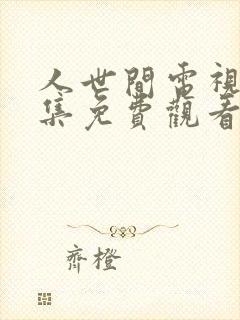 人世間電視
集免費觀看
齊橙